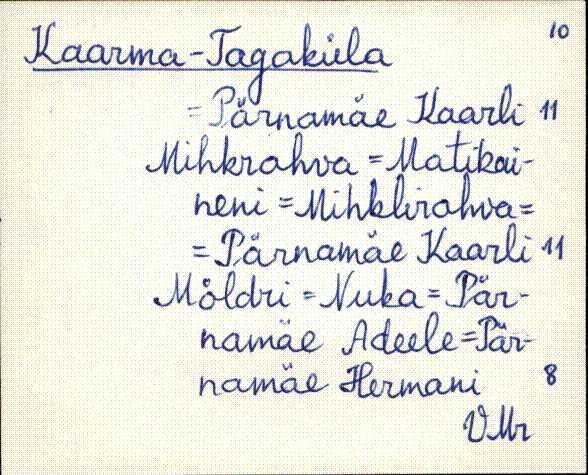 10
Kaarma-Tagaküla
= Pärnamäe Kaarli 11
Mihkrahva = Matikai-
neni = Mihklirahva =
= Pärnamäe Kaarli 11
Möldri = Nuka = Pär-
namäe Adeele = Pär-
namäe Hermani 8
VMr